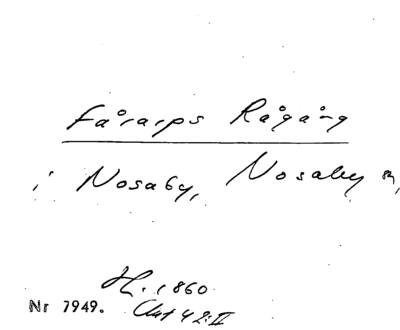 Fårarps Rågång
i Nosaby, Nosaby sn,
H. 1860
Nr 7949. Avt 42:II